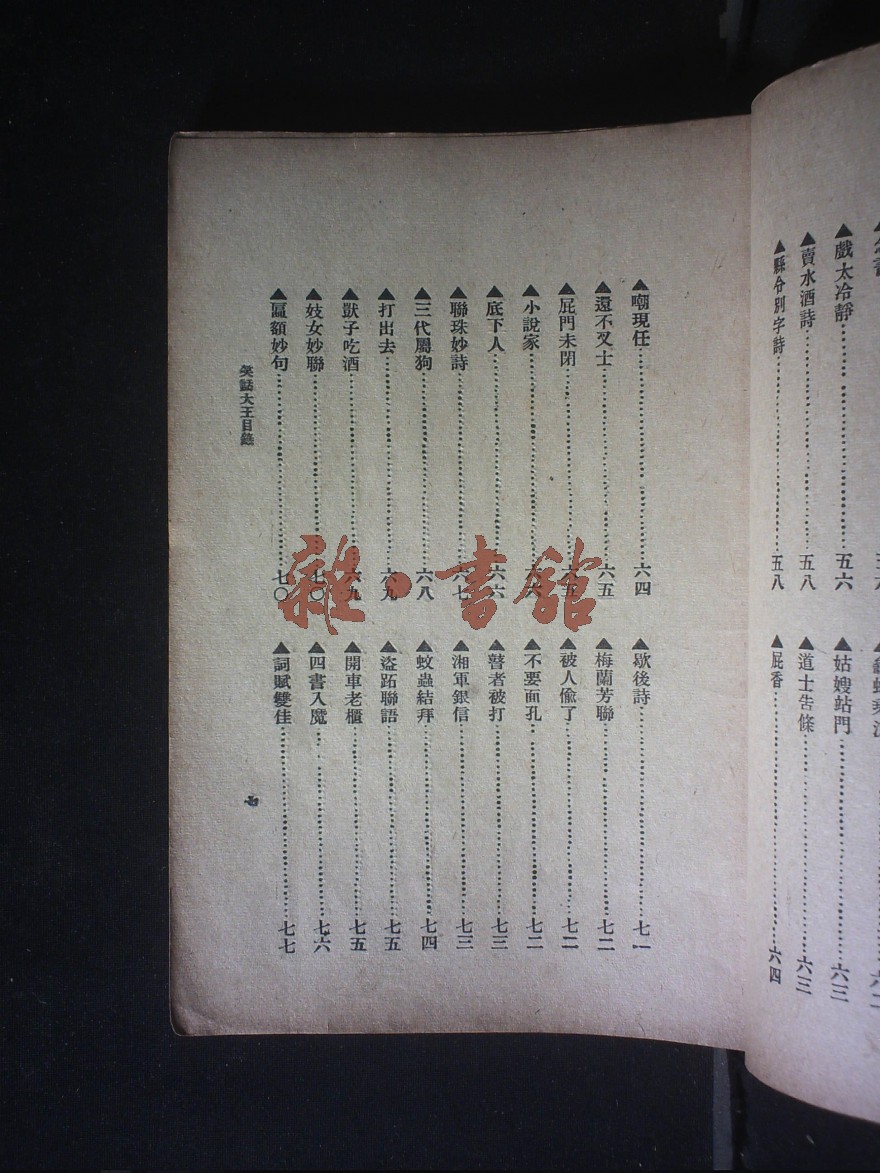 ▲戲太冷靜 五六
▲賣水酒詩 五八
▲縣令別字詩 五八
▲姑嫂站門 六三
▲道士吿條 六三
▲屁香 六四
▲嘲現任 六四
▲還不叉士 六五
▲屁門未閉 六五
▲小說家 六六
▲底下人 六六
▲聯珠妙詩 六七
▲三代屬狗 六八
▲打出去 六九
▲獃子吃酒 六九
▲妓女妙聯 七〇
▲匾額妙句 七〇
▲歇後詩 七一
▲梅蘭芳聯 七二
▲被人偸了 七二
▲不要面孔 七二
▲瞽者被打 七三
▲湘軍銀信 七三
▲蚊蟲結拜 七四
▲盜跖聯語 七五
▲開車老櫃 七五
▲四書入魔 七六
▲詞賦雙佳 七七
笑話大王目錄
雜·書館